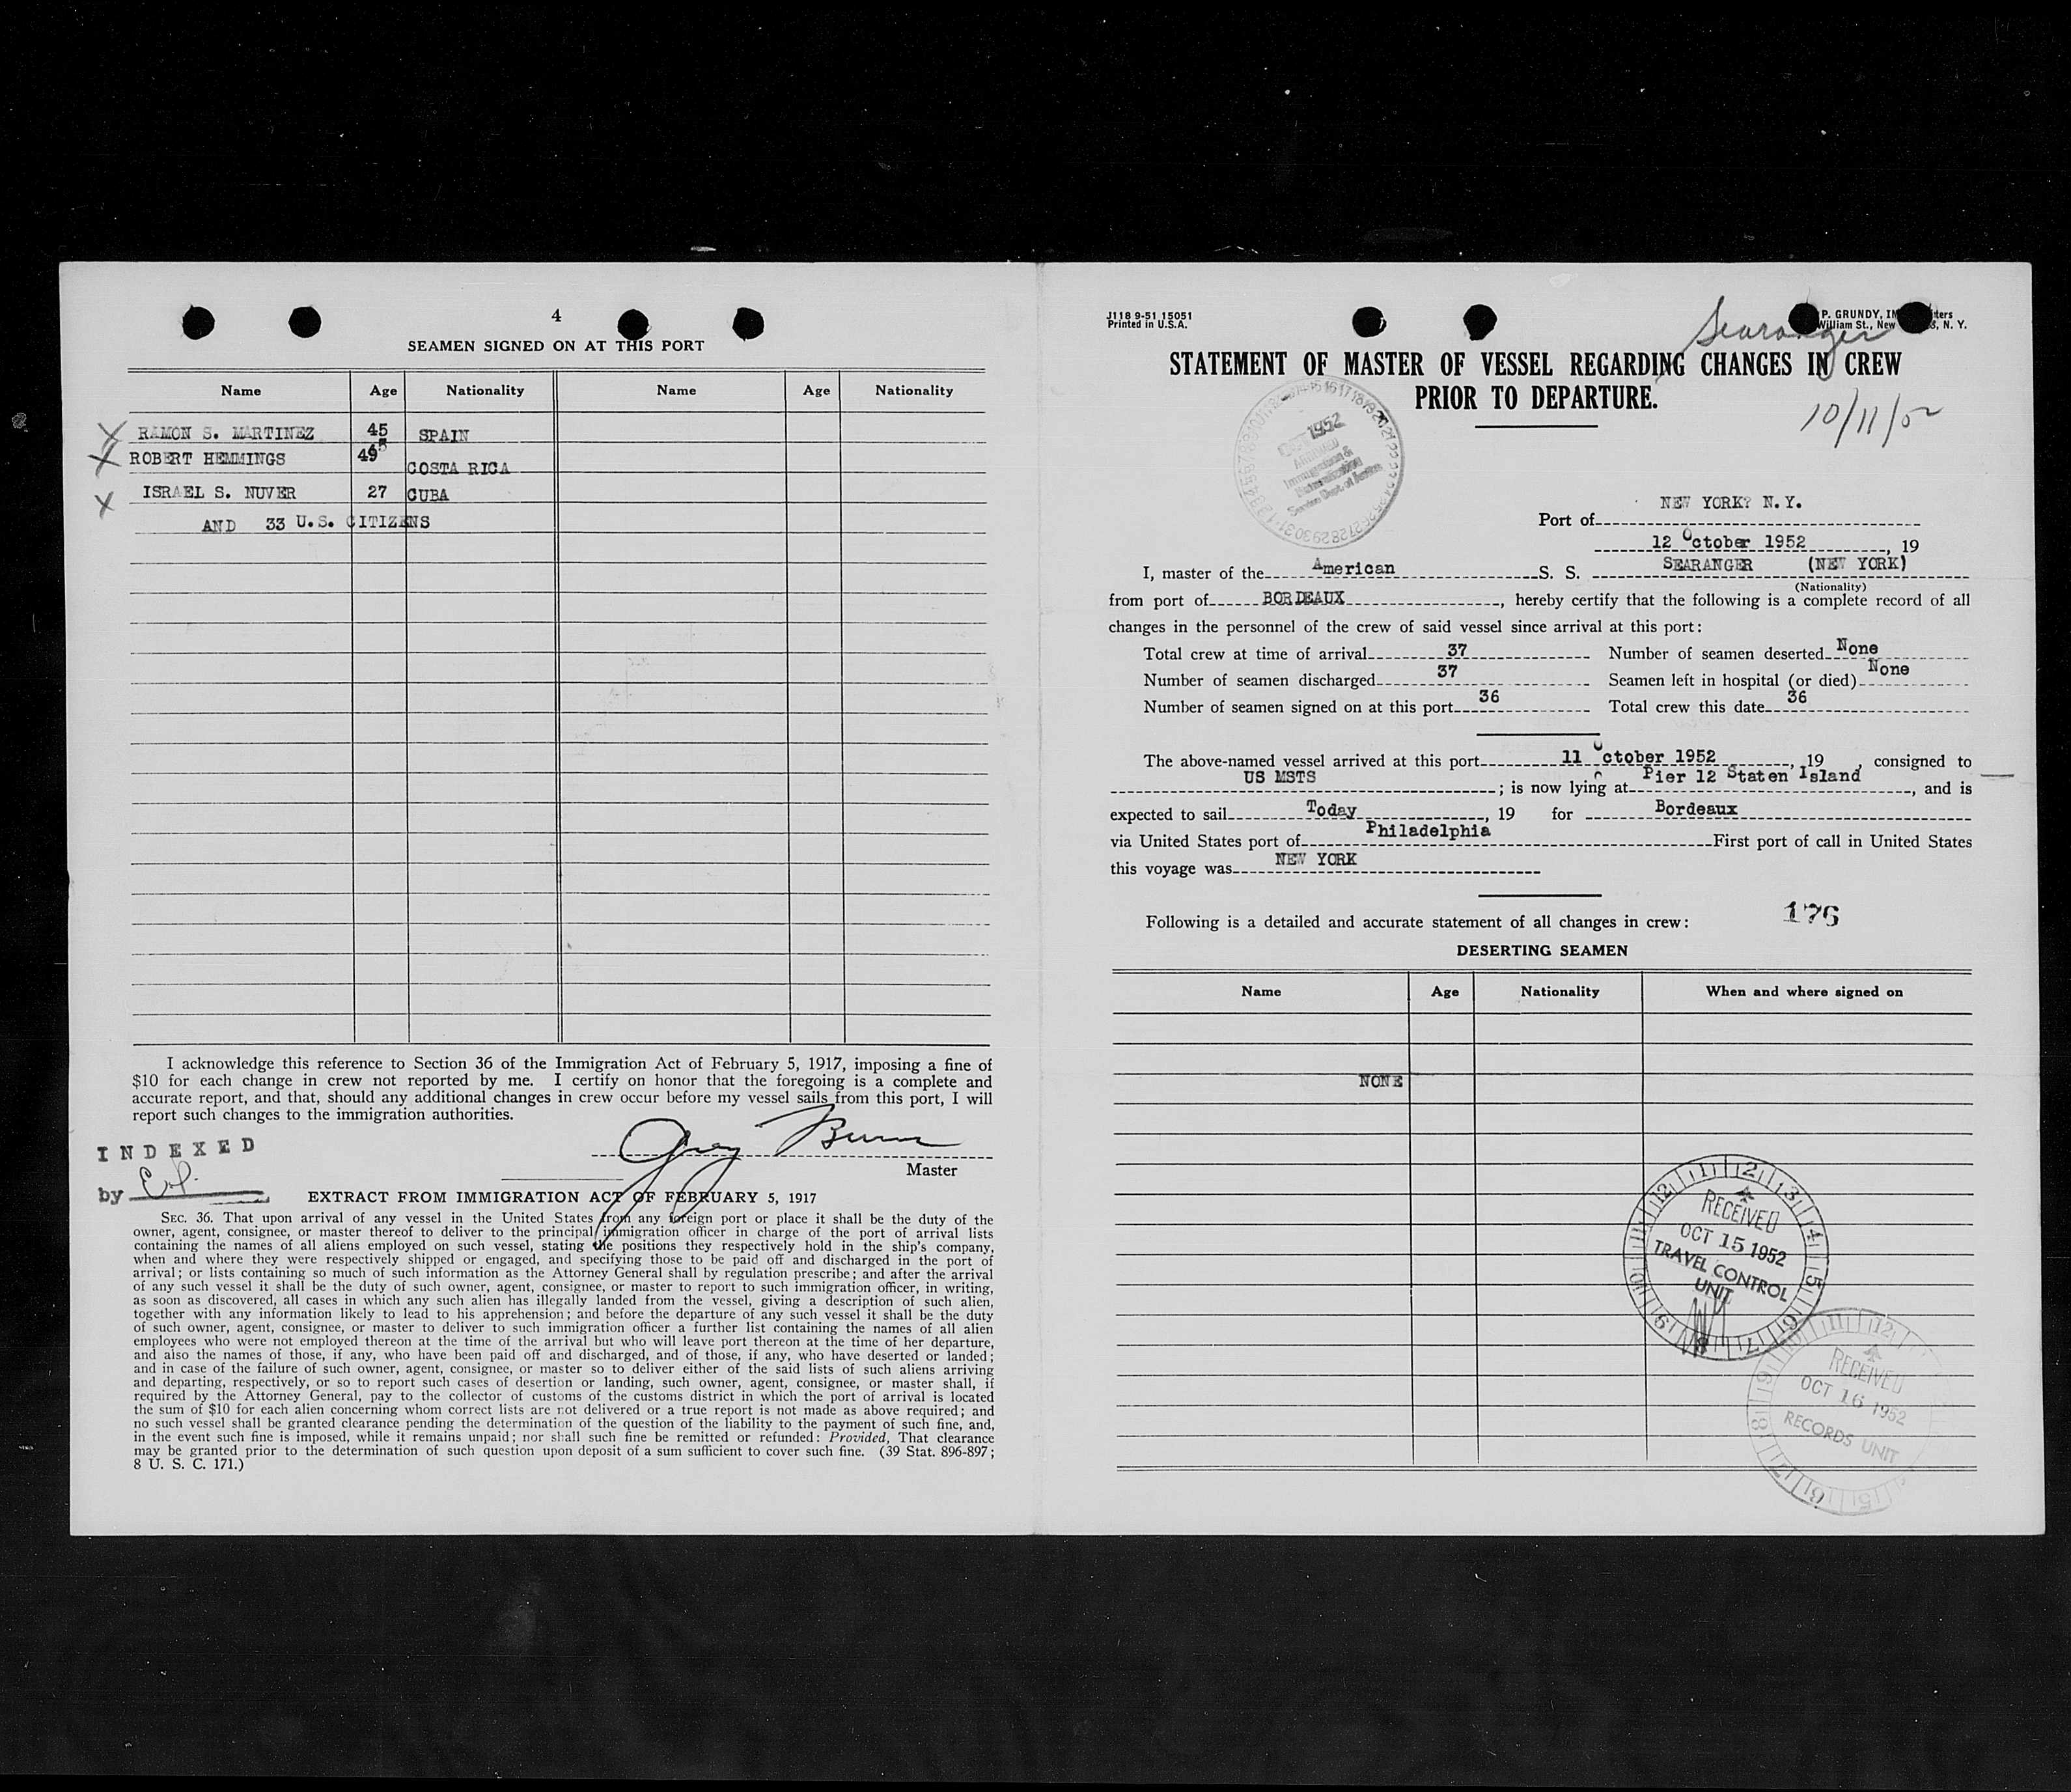 4
SEAMEN SIGNED ON AT THIS PORT
Name Age Nationality Name Age Nationality
RAMON S. MARTINEZ 45 SPAIN
ROBERT HEMMINGS 49 COSTA RICA
ISRAEL S. NUVER 27 CUBA
AND 33 U.S. CITIZENS
I acknowledge this reference to Section 36 of the Immigration Act of February 5, 1917, imposing a fine of
$10 for each change in crew not reported by me. I certify on honor that the foregoing is a complete and
accurate report, and that, should any additional changes in crew occur before my vessel sails from this port, I will
report such changes to the immigration authorities.
INDEXED
by
Master
EXTRACT FROM IMMIGRATION ACT OF FEBRUARY 5, 1917
SEC. 36. That upon arrival of any vessel in the United States from any foreign port or place it shall be the duty of the
owner, agent, consignee, or master thereof to deliver to the principal immigration officer in charge of the port of arrival lists
containing the names of all aliens employed on such vessel, stating the positions they respectively hold in the ship's company,
when and where they were respectively shipped or engaged, and specifying those to be paid off and discharged in the port of
arrival; or lists containing so much of such information as the Attorney General shall by regulation prescribe; and after the arrival
of any such vessel it shall be the duty of such owner, agent, consignee, or master to report to such immigration officer, in writing,
as soon as discovered, all cases in which any such alien has illegally landed from the vessel, giving a description of such alien,
together with any information likely to lead to his apprehension; and before the departure of any such vessel it shall be the duty
of such owner, agent, consignee, or master to deliver to such immigration officer a further list containing the names of all alien
employees who were not employed thereon at the time of the arrival but who will leave port thereon at the time of her departure,
and also the names of those, if any, who have been paid off and discharged, and of those, if any, who have deserted or landed;
and in case of the failure of such owner, agent, consignee, or master so to deliver either of the said lists of such aliens arriving
and departing, respectively, or so to report such cases of desertion or landing, such owner, agent, consignee, or master shall, if
required by the Attorney General, pay to the collector of customs of the customs district in which the port of arrival is located
the sum of $10 for each alien concerning whom correct lists are not delivered or a true report is not made as above required; and
no such vessel shall be granted clearance pending the determination of the question of the liability to the payment of such fine, and,
in the event such fine is imposed, while it remains unpaid; nor shall such fine be remitted or refunded: Provided, That clearance
may be granted prior to the determination of such question upon deposit of a sum sufficient to cover such fine. (39 Stat. 896-897;
8 U. S. C. 171.)
J118 9-51 15051
Printed in U.S.A.
Searanger
P. GRUNDY,
William St., New N. Y.
STATEMENT OF MASTER OF VESSEL REGARDING CHANGES IN CREW
PRIOR TO DEPARTURE.
10/11/52
OCT 1952
ARRIVED
Immigration &
Naturalization
Service Dept. of Justice
Port of NEW YORK? N.Y.
12 October 1952, 19
I, master of the American S. S. SEARANGER (NEW YORK)
(Nationality)
from port of BORDEAUX, hereby certify that the following is a complete record of all
changes in the personnel of the crew of said vessel since arrival at this port:
Total crew at time of arrival 37 Number of seamen deserted None
Number of seamen discharged 37 Seamen left in hospital (or died) None
Number of seamen signed on at this port 36 Total crew this date 36
The above-named vessel arrived at this port 11 October 1952, 19 , consigned to
US MSTS; is now lying at Pier 12 Staten Island, and is
expected to sail Today, 19 for Bordeaux
via United States port of Philadelphia First port of call in United States
this voyage was NEW YORK
176
Following is a detailed and accurate statement of all changes in crew:
DESERTING SEAMEN
Name Age Nationality When and where signed on
NONE
RECEIVED
OCT 15 1952
TRAVEL CONTROL
UNIT
RECEIVED
OCT 16 1952
RECORDS UNIT